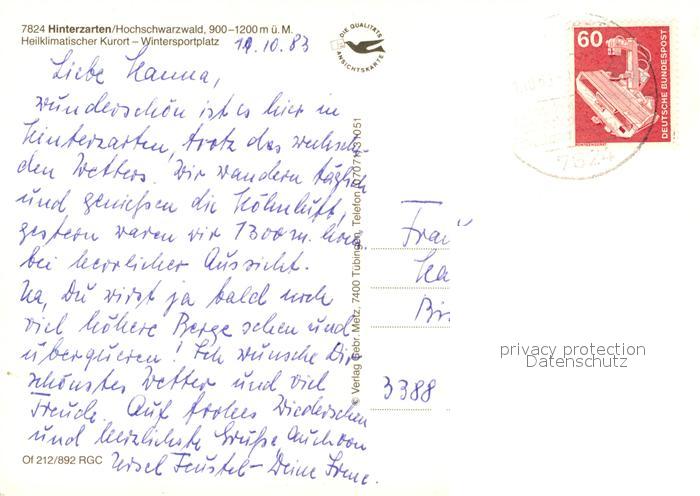 7824 Hinterzarten/Hochschwarzwald, 900–1200 m ü. M.
Heilklimatischer Kurort – Wintersportplatz
11.10.83
DIE QUALITÄTS ANSICHTSKARTE
60
DEUTSCHE BUNDESPOST
7824
Liebe Hanna,
wunderschön ist es hier in
Hinterzarten, trotz des wechseln-
den Wetters. Wir wandern täglich
und genießen die Höhenluft,
gestern waren wir 1300 m. hoch
bei herrlicher Aussicht.
Na, Du wirst ja bald noch
viel höhere Berge sehen und
überqueren! Ich wünsche Dir
schönstes Wetter und viel
Freude. Auf frohes Wiedersehen
und herzlichste Grüße, Auch von
Ursel Feustel – Deine Irene.
© Verlag Gebr. Metz, 7400 Tübingen, Telefon (07071) 31051
Frau
Ha
3388
privacy protection
Datenschutz
Of 212/892 RGC